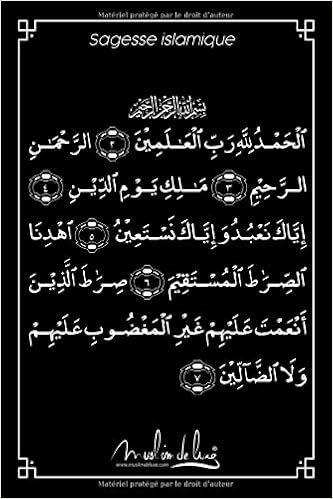 Matériel protégé par le droit d'auteur
Sagesse islamique
بِسْمِ اللَّهِ الرَّحْمَٰنِ الرَّحِيمِ
الْحَمْدُ لِلَّهِ رَبِّ الْعَـٰلَمِينَ ٢ الرَّحْمَـٰنِ
الرَّحِيمِ ٣ مَـٰلِكِ يَوْمِ الدِّينِ ٤
إِيَّاكَ نَعْبُدُ وَإِيَّاكَ نَسْتَعِينُ ٥ اهْدِنَا
الصِّرَٰطَ الْمُسْتَقِيمَ ٦ صِرَٰطَ الَّذِينَ
أَنْعَمْتَ عَلَيْهِمْ غَيْرِ الْمَغْضُوبِ عَلَيْهِمْ
وَلَا الضَّآلِّينَ ٧
muslim de luxe
www.muslimdeluxe.com
Matériel protégé par le droit d'auteur